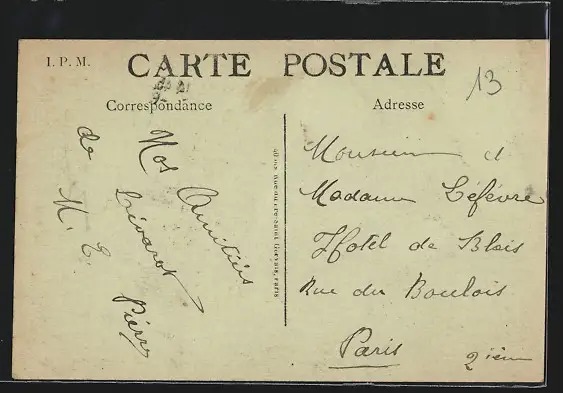 I. P. M.
CARTE POSTALE
Correspondance
Adresse
13
Nos Amitiés
de Livarot
M. E. Pierry
Monsieur et
Madame Lefévre
Hotel de Blois
Rue du Boulois
Paris
2ième